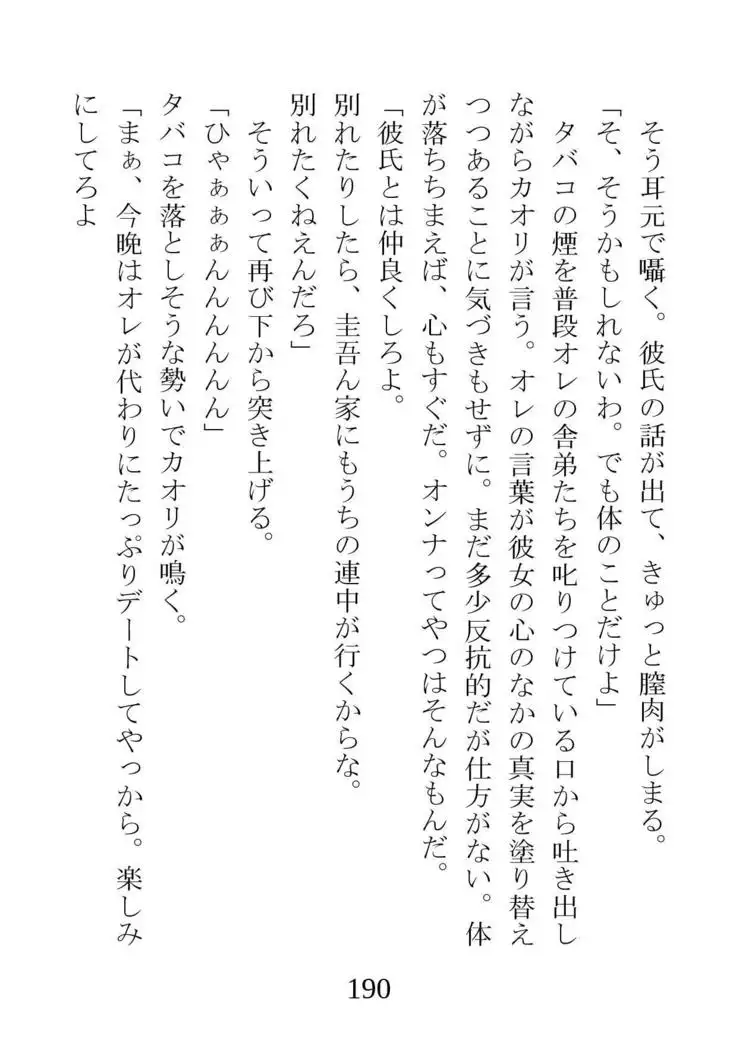 そう耳元で囁く。彼氏の話が出て、きゅっと膣肉がしまる。
「そ、そうかもしれないわ。でも体のことだけよ」
タバコの煙を普段オレの舎弟たちを叱りつけている口から吐き出し
ながらカオリが言う。オレの言葉が彼女の心のなかの真実を塗り替え
つつあることに気づきもせずに。まだ多少反抗的だが仕方がない。体
が落ちちまえば、心もすぐだ。オンナってやつはそんなもんだ。
「彼氏とは仲良くしろよ。
別れたりしたら、圭吾ん家にもうちの連中が行くからな。
別れたくねえんだろ」
そういって再び下から突き上げる。
「ひゃぁぁぁんんんんんん」
タバコを落としそうな勢いでカオリが鳴く。
「まぁ、今晩はオレが代わりにたっぷりデートしてやっから。楽しみ
にしてろよ
190